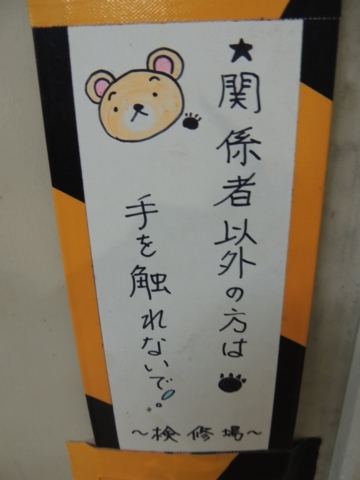 ★関係者以外の方は
手を触れないで。
～検修場～